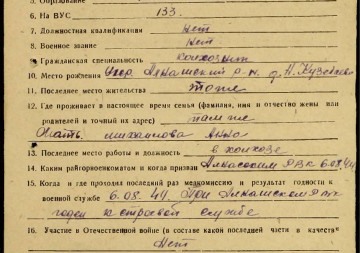 5. Образование
6. На ВУС 133.
7. Должностная квалификация нет
8. Военное звание нет
9. Гражданская специальность колхозник
10. Место рождения Удмур. Алнашский р-н. д. Н. Кузебаево
11. Последнее место жительства тоже
12. Где проживает в настоящее время семья (фамилия, имя и отчество жены или
родителей и точный их адрес) там же
Мать. Михайлова Анна
13. Последнее место работы и должность в колхозе
14. Каким райгорвоенкоматом и когда призван Алнашским РВК 6.08.44
15. Когда и где проходил последний раз медкомиссию и результат годности к
военной службе 6.08.44 При Алнашском РВК
годен к строевой службе
16. Участие в Отечественной войне (в составе какой последней части и в качестве
Нет